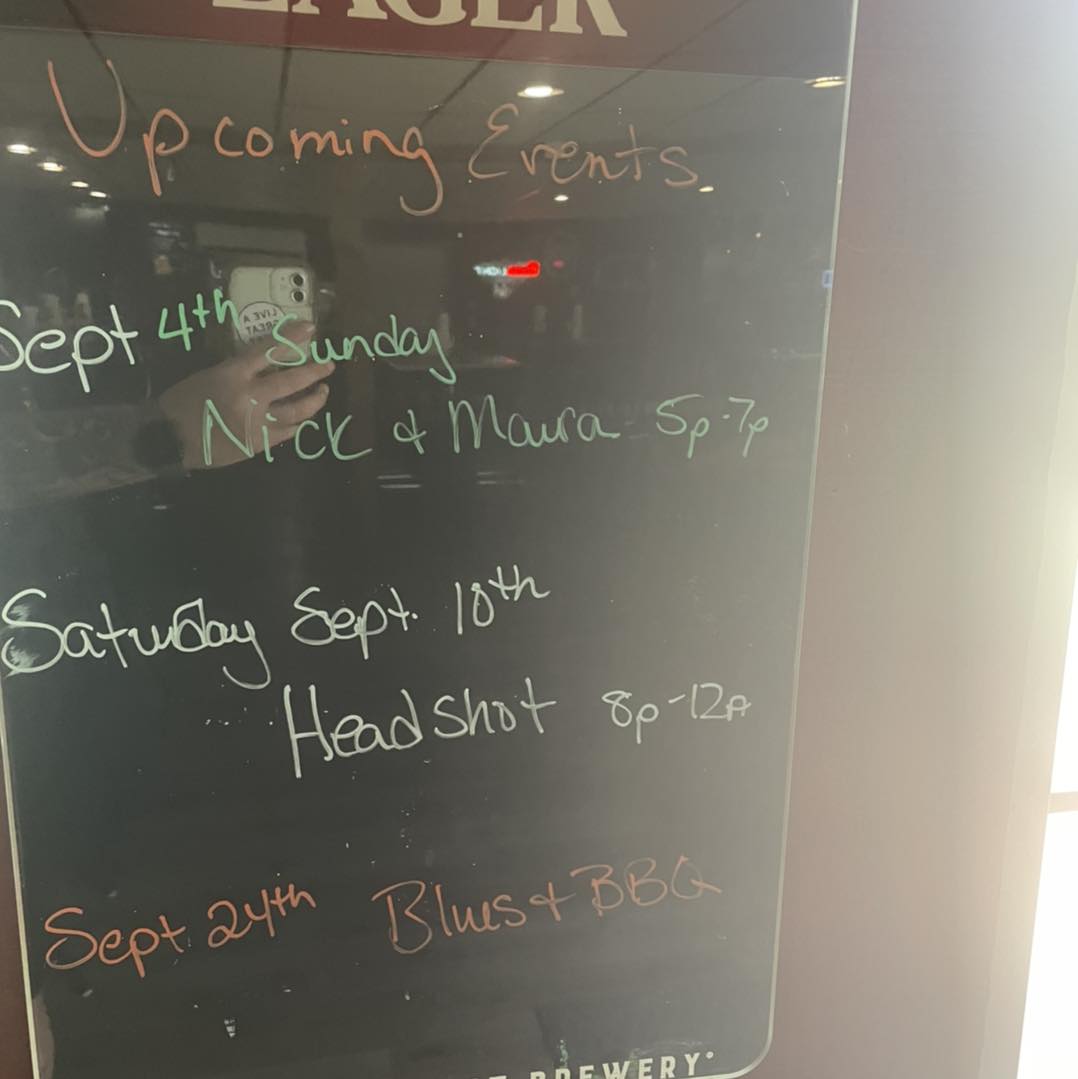 LAGER
Upcoming Events
Sept 4th Sunday
Nick & Maura 5p-7p
Saturday Sept. 10th
Headshot 8p-12A
Sept. 24th Blues & BBQ
BREWERY